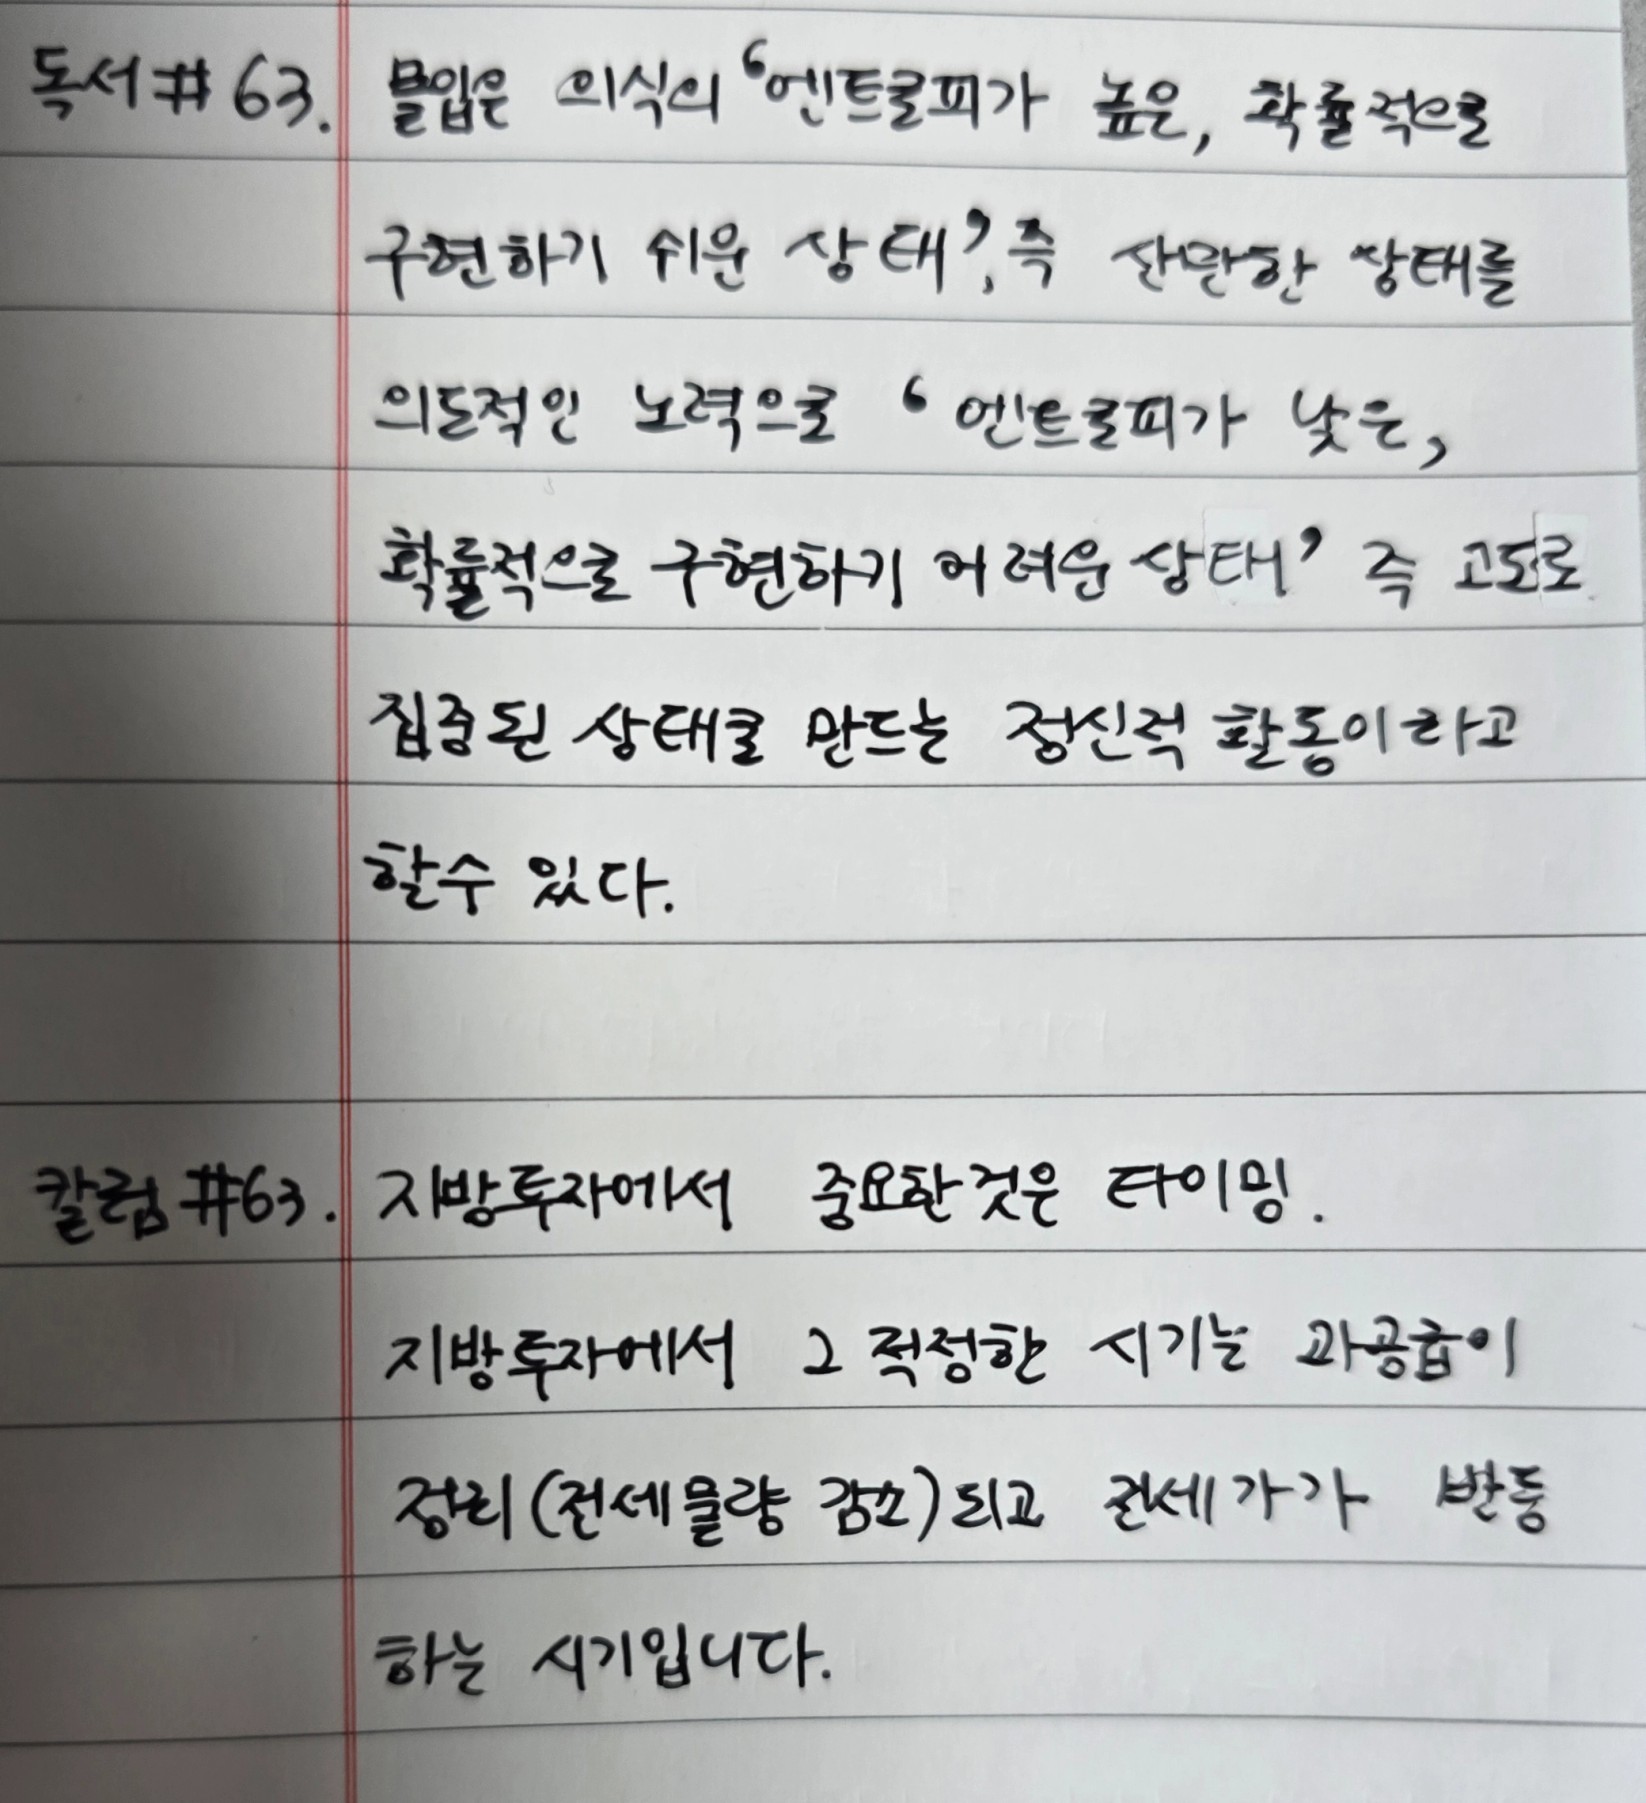 독서 #63. 몰입은 의식의 '엔트로피가 높은, 확률적으로
구현하기 쉬운 상태', 즉 산만한 상태를
의도적인 노력으로 '엔트로피가 낮은,
확률적으로 구현하기 어려운 상태' 즉 고도로
집중된 상태로 만드는 정신적 활동이라고
할수 있다.
칼럼 #63. 지방투자에서 중요한것은 타이밍.
지방투자에서 그 적정한 시기는 과공급이
정리(전세물량 감소)되고 전세가가 반등
하는 시기입니다.